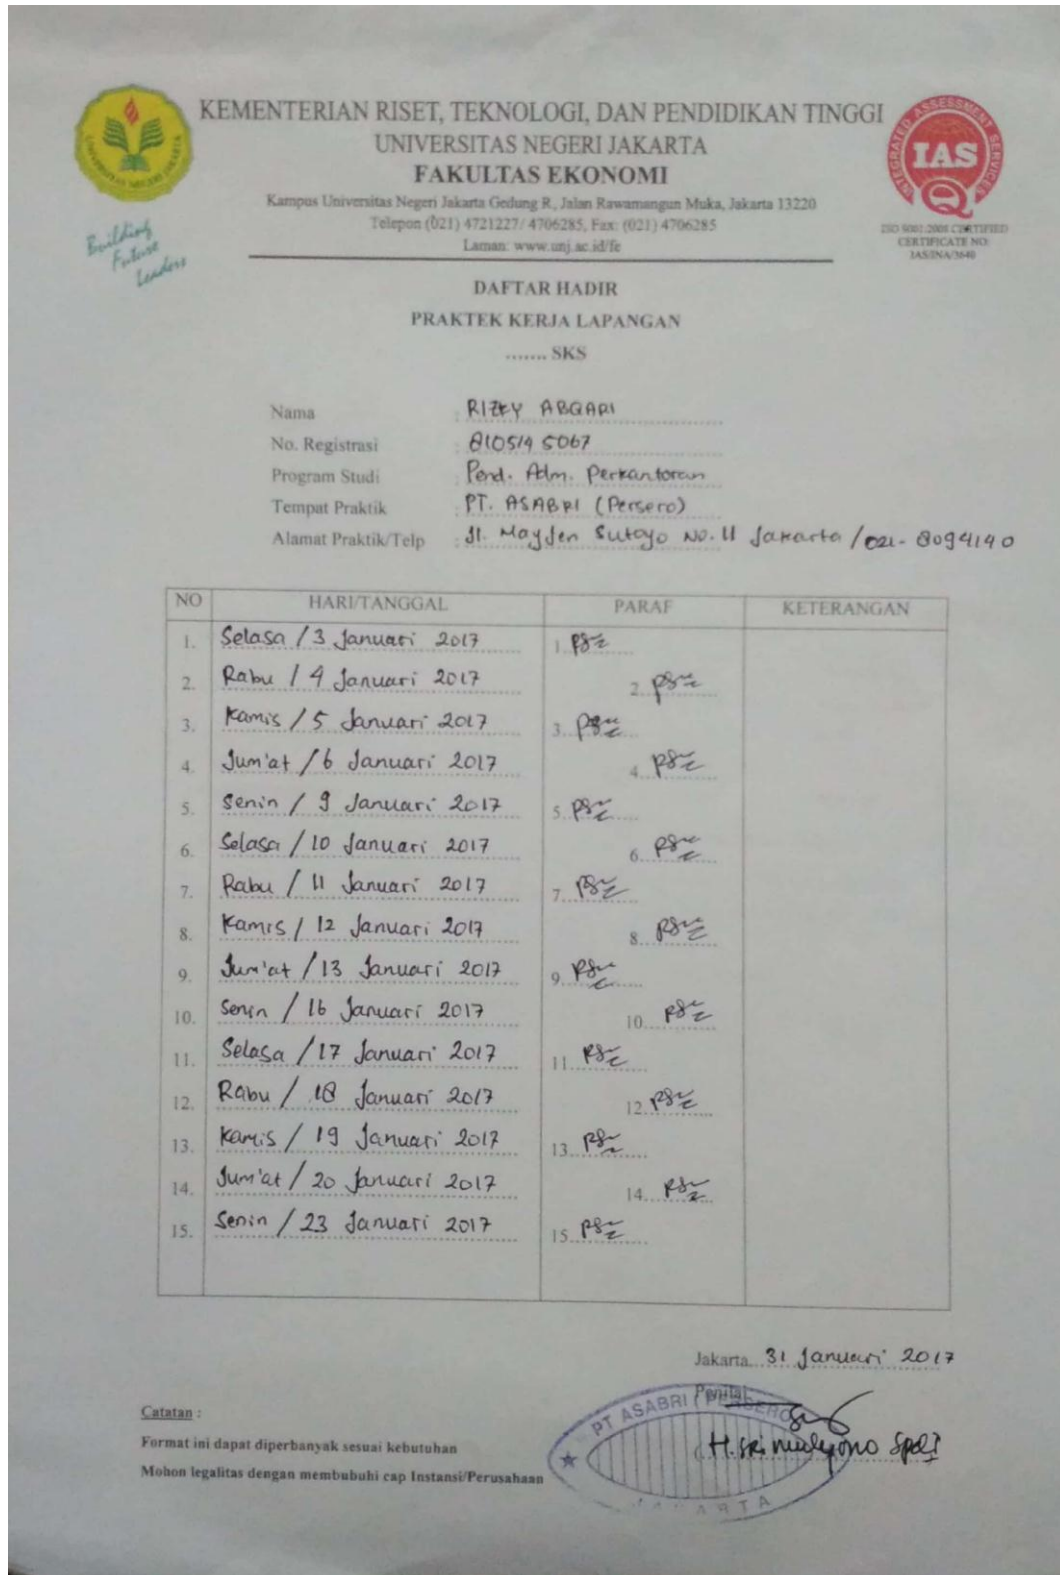 KEMENTERIAN RISET, TEKNOLOGI, DAN PENDIDIKAN TINGGI
UNIVERSITAS NEGERI JAKARTA
FAKULTAS EKONOMI
Kampus Universitas Negeri Jakarta Gedung R, Jalan Rawamangun Muka, Jakarta 13220
Telepon (021) 4721227/ 4706285, Fax: (021) 4706285
Laman: www.unj.ac.id/fe
UNIVERSITAS NEGERI JAKARTA
Building
Future
Leaders
INTEGRATED ASSESSMENT SERVICES
IAS
Q
ISO 9001:2008 CERTIFIED
CERTIFICATE NO:
IAS/INA/3640
DAFTAR HADIR
PRAKTEK KERJA LAPANGAN
....... SKS
Nama : RIZKY ABQARI
No. Registrasi : 8105145067
Program Studi : Pend. Adm. Perkantoran
Tempat Praktik : PT. ASABRI (Persero)
Alamat Praktik/Telp : Jl. Mayjen Sutoyo No. 11 Jakarta / 021- 8094140
NO HARI/TANGGAL PARAF KETERANGAN
1. Selasa / 3 Januari 2017 1.
2. Rabu / 4 Januari 2017 2.
3. Kamis / 5 Januari 2017 3.
4. Jum'at / 6 Januari 2017 4.
5. Senin / 9 Januari 2017 5.
6. Selasa / 10 Januari 2017 6.
7. Rabu / 11 Januari 2017 7.
8. Kamis / 12 Januari 2017 8.
9. Jum'at / 13 Januari 2017 9.
10. Senin / 16 Januari 2017 10.
11. Selasa / 17 Januari 2017 11.
12. Rabu / 18 Januari 2017 12.
13. Kamis / 19 Januari 2017 13.
14. Jum'at / 20 Januari 2017 14.
15. Senin / 23 Januari 2017 15.
Jakarta, 31 Januari 2017
Penilai
PT ASABRI (PERSERO)
JAKARTA
H. Sri Mulyono SPdI
Catatan :
Format ini dapat diperbanyak sesuai kebutuhan
Mohon legalitas dengan membubuhi cap Instansi/Perusahaan